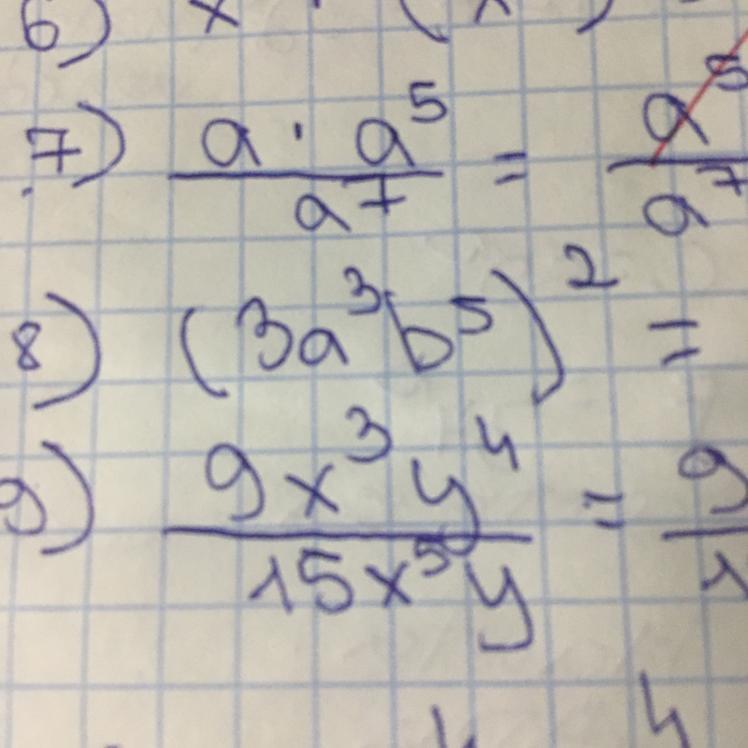 6) x · (x )
7) a · a⁵ / a⁷ = a⁵ / a⁷
8) (3a³b⁵)² =
9) 9x³y⁴ / 15x⁵y = 9 / 1
4